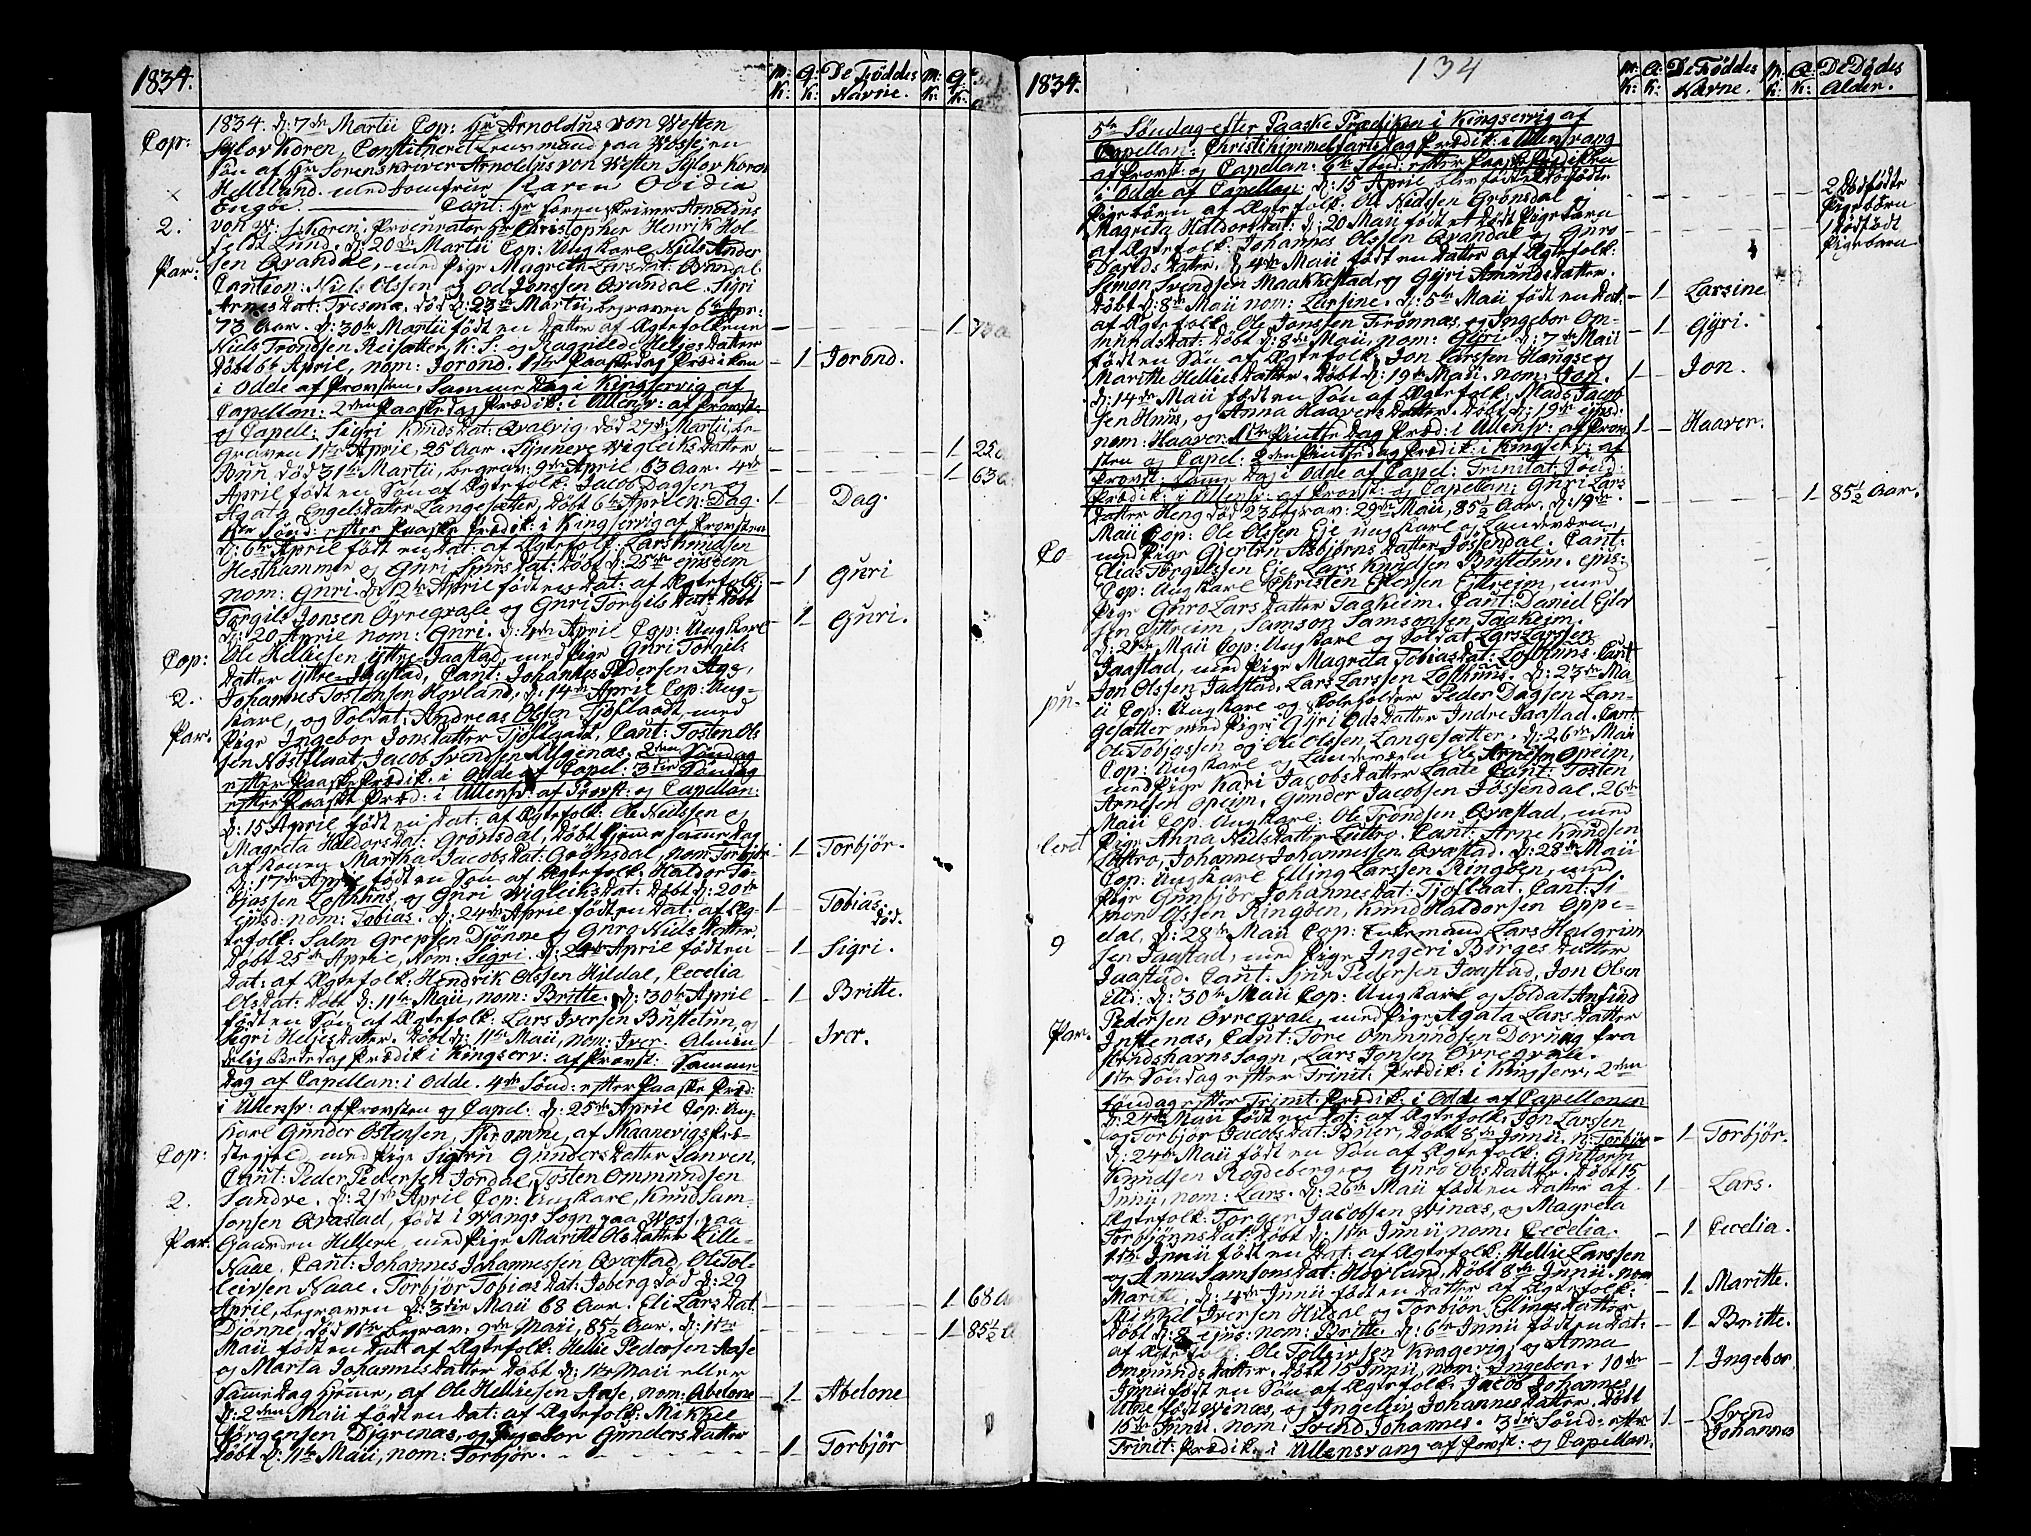 1834.
M: K:
Q: K:
De Føddes Navne.
M: K:
Q: K:
1834. d: 7de Martii Cop: Hr Arnoldus von Westen
Sylov Koren, Constitueret Lensmand paa Vossejen
Søn af Hr Sorenskriver Arnoldus von Westen Sylov Koren
Helleland med Jomfrue Karen Ovidia
Engøe Cant: Hr Sorenskriver Arnoldus
von W: S: Koren, Procurator Hr Christopher Henrik Hol-
feldt Lund. d: 20de Martii Cop: Ungkarl Niels Ander
sen Qvandal, med Pige Magreta Larsdat: Qvandal.
Cantion: Niels Olssen og Od Jonssen Qvandal. Sigri
Arnesdat: Tresmæ, død d: 23de Martii, begraven 6te Apr:
73 Aar. d: 30te Martii født en Datter af Ægtefolkene
Niels Trondsen Reisæter K: S: og Ragnilde Heljes Datter
Døbt 6te April, nom: Jorond. 1ste Paaskedag Prædiken
i Odde af Provsten. Samme Dag i Kingservig af
Capellan: 2den Paaskedag Prædik: i Ullensv: af Provst:
og Capell: Sigri Knudsdat: Qvalvig, død 27de Martii, be-
graven 1ste April, 25 Aar. Synneve Vigleiks Datter
Buu, død 31te Martii, begrav: 9de April, 63 Aar. 4de
April født en Søn af Ægtefolk: Jacob Dagsen og
Agata Engelsdatter Langesætter, døbt 6te April n: Dag.
1ste Sønd: efter Paaske Prædik: i Kingservig af Provsten
d: 6te April født en Dat: af Ægtefolk: Lars Knudsen
Hesthammer og Guri Sjursdat: Døbt d: 25de ejusdem
nom: Guri. d: 12te April født en Dat: af Ægtefolk:
Torgils Jonsen Ovregvale og Guri Torgils Dat: Døbt
d: 20 April nom: Guri. d: 4de April Cop: Ungkarl
Ole Helliesen Yttre Jaastad, med Pige Guri Torgils
Datter Yttre Jaastad, Cant: Johannes Pedersen Age,
Johannes Tostensen Hovland, d: 14de April Cop: Ung-
karl, og Soldat: Andreas Olssen Tjoflaadt, med
Pige Ingebor Jons Datter Tjoflaadt. Cant: Tosten Ols
sen Nostflaat, Jacob Svendsen Algenæs. 2den Søndag
efter Paaske Prædik: i Odde af Capel: 3die Søndag
efter Paaske Præd: i Ullensv: af Provst: og Capellan:
d: 15 April født en Dat: af Ægtefolk: Ole Nielssen og
Magreta Haldorsdat: Grønsdal, døbt hjemme samme Dag
af Konen Martha Jacobsdat: Grønsdal, nom: Torbjør
d: 17de April født en Søn af Ægtefolk: Haldor To-
bjassen Lofthuus, og Guri Vigleiksdat: Døbt d: 20de
ejusd: nom: Tobias. d: 24de April født en Dat: af Æg-
tefolk: Salm Grepsen Djønne og Guro Niels Datter
Døbt 25de April, nom: Sigri. d: 24de April født en
Dat: af Ægtefolk: Hendrik Olssen Hildal, Cecelia
Olsdat: Døbt d: 11te Maii, nom: Britte. d: 30te April
født en Søn af Ægtefolk: Lars Iversen Bustetun, og
Sigri Heljes Datter. Døbt d: 11te Maii, nom: Iver. Almin
delig Bededag Prædik: i Kingserv: af Provst: Samme
Dag af Capellan: i Odde. 4de Sønd: efter Paaske Præd:
i Ullensv: af Provsten og Capel: d: 25de April Cop: Ung-
karl Gunder Ostensen, af Maanevigs Præ-
stegjeld, med Pige Sigrii Gunders Datter Sanven.
Cant: Peder Pedersen Jordal, Tosten Ommundsen
Sandve. d: 21de April Cop: Ungkarl, Knud Sam-
sonsen Qvæstad, født i Wangs Sogn paa Woss, paa
Gaarden Hellere, med Pige Maritte Olsdatter Lille-
Naae. Cant: Johannes Johannessen Qvæstad, Ole Tol-
leivsen Naae. Torbjør Tobiasdat: Isberg død d: 29
April, begraven d: 3die Maii 68 Aar. Eli Larsdat:
Djønne, død 1ste begrav: 9de Maii, 85½ Aar. d: 1ste
Maii født en Dat: af Ægtefolk: Hellie Pedersen Aase
og Marta Johannesdatter Døbt d: 11te Maii eller
samme Dag hjeme, af Ole Helliesen Aase, nom: Abelone
d: 2den Maii født en Dat: af Ægtefolk: Mikkel
Jørgensen Digrenæs, og Ingebor Gunders Datter
Døbt d: 11te Maii, nom: Torbjør.
Cop:
2.
Par:
Cop:
2.
Par.
Cop:
2.
Par:
1 73 a
1 Jorond.
1 25 a
1 63 a:
1 Dag.
1 Guri
1 Guri.
1 Torbjør.
1 Tobias. død.
1 Sigri.
1 Britte.
1 Iver.
1 68 a
1 85½ a
1 Abelone
1 Torbjør
1834.
134
M: K:
Q: K:
De Føddes Navne.
M: K:
Q: K:
De Dødes Alder.
5te Søndag efter Paaske Prædiken i Kingservig af
Capellan: Christi himmelfartsdag Prædik: i Ullensvang
af Provst: og Capellan: 6te Sønd: efter Paaske Prædiken
i Odde af Capellan: d: 15 April blev født 2 dødfødte
Pigebørn af Ægtefolk: Ole Nielssen Grønsdal og
Magreta Haldorsdat: d: 20 Maii født et dødt Pigebarn
af Ægtefolk: Johannes Olssen Qvandal og Guro
Davids Datter. d: 4de Maii født en Datter af Ægtefolk:
Simon Svendsen Maakkestad, og Gyri Amunds Datter.
Døbt d: 8de Maii nom: Larsine. d: 5te Maii født en Dat:
af Ægtefolk: Ole Jonssen Trønnæs, og Ingebor Om-
mundsdat: Døbt d: 8de Maii, nom: Gyri. d: 7de Maii
født en Søn af Ægtefolk: Jon Larssen Haugse og
Maritte Hellies Datter. Døbt d: 19de Maii, nom: Jon.
d: 14de Maii født en Søn af Ægtefolk: Mads Jacob
sen Huus, og Anna Haavers Datter. Døbt d: 19de ejusd:
nom: Haaver. 1ste Pintse Dag Præd: i Ullensv: af Prov-
sten og Capel: 2den Pintsedag Prædik: i Kingserv: af
Provst: samme Dag i Odde af Capel: Trinitat: Sønd:
Prædik: i Ullensv: af Provst: og Capellan: Guri Lars
Datter Heng død 23 begrav: 29de Maii, 85½ Aar. d: 19de
Maii Cop: Ole Olssen Eje Ungkarl og Landeværn,
med Pige Gjertru Asbjørns Datter Jøsendal. Cant:
Elias Torgilssen Eje, Lars Knudsen Bustetun. ejus:
Cop: Ungkarl Christen Eilersen Eittreim, med
Pige Guro Lars Datter Taakeim. Cant: Daniel Ejler
sen Eittreim, Samson Samsonsen Taakeim.
d: 21de Maii Cop: Ungkarl og Soldat Lars Larsen
Jaastad, med Pige Magreta Tobiasdat: Lofthuus. Cant:
Jon Olssen Jaastad, Lars Larssen Lofthuus. d: 23de Ma-
ii Cop: Ungkarl og Skoleholder Peder Dagsen Lan-
gesætter med Pige: Gyri Ods Datter Indre Jaastad. Cant:
Ole Tobjassen og Ole Olssen Langesætter. d: 26de Maii
Cop: Ungkarl og Landeværn Ole Arnesen Opeim,
med Pige Kari Jacobs Datter Laate Cant: Tosten
Arnesen Opeim, Gunder Jacobsen Jøssendal. 26de
Maii Cop: Ungkarl: Ole Trondsen Qvæstad, med
Pige Anna Niels Datter Lutro. Cant: Arne Knudsen
Lutro, Johannes Johannessen Qvæstad. d: 28de Maii
Cop: Ungkarl Elling Larssen Ringøen, med
Pige Gunbjør Johannesdat: Tjoflaat. Cant: Si-
mon Olssen Ringøen, Knud Haldorsen Oppe-
dal. d: 28de Maii Cop: Enkemand Lars Halgrim
sen Jaastad, med Pige Ingeri Birges Datter
Jaastad. Cant: Sjur Pedersen Jaastad, Jon Olsen
ibid. d: 30te Maii Cop: Ungkarl og Soldat Anfind
Pedersen Ovregvale, med Pige Agata Lars Datter
Instenæs, Cant: Tore Ommundsen Dorung fra
Strandebarns Sogn, Lars Jonsen Ovregvale.
1ste Søndag efter Trinit: Prædik: i Kingserv: 2den
Søndag efter Trinit: Prædik: i Odde af Capellanen
d: 24de Maii født en Dat: af Ægtefolk: Jon Larssen
og Torbjør Jacobsdat: Buer, Døbt 8de Junii, n: Torbjør
d: 24de Maii født en Søn af Ægtefolk: Guttorm
Knudsen Rogdeberg og Guro Ols Datter. Døbt 15
Junii, nom: Lars. d: 26de Maii født en Datter af
Ægtefolk: Torger Jacobsen Vinæs, og Magreta
Torbjørnsdat: Døbt d: 1ste Junii nom: Cecelia.
1ste Junii født en Dat: af Ægtefolk: Hellie Larssen
og Anna Samsonsdat: Hovland, Døbt 8de Junii, nom
Maritte, d: 4de Junii født en Datter af Ægtefolk:
Mikkel Iversen Hildal og Torbjør Ellings Datter
Døbt d: 8 ejus: nom: Britte. d: 6te Junii født en Dat:
af Ægtefolk: Ole Tolleivsen Kingervig, og Anna
Ommunds Datter. Døbt 15 Junii, nom: Ingebor. 10de
Junii født en Søn af Ægtefolk: Jacob Johannes
Utne født Vinæs, og Ingeleiv Johannes Datter. Døbt
15de Junii, nom: Svend Johannes. 3die Sønd: efter
Trinit: Prædik: i Ullensvang af Provst: og Capellan:
Co
pu.
lered
9
Par.
2 Dødfødte Pigebørn
1 Dødfødt Pigebarn
1 Larsine
1 Gyri.
1 Jon.
1 Haaver.
1 85½ Aar.
1 Torbjør.
1 Lars.
1 Cecelia.
1 Maritte.
1 Britte.
1 Ingebor
1 Svend Johannes